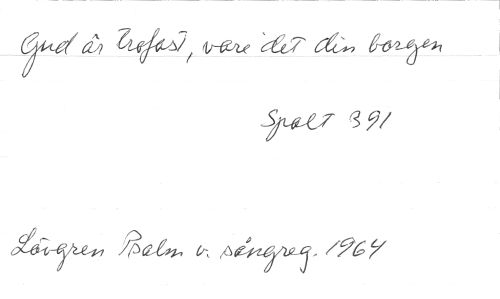 Gud är trofast, vare det din borgen
Spalt 391
Lövgren Psalm v. sångreg. 1964